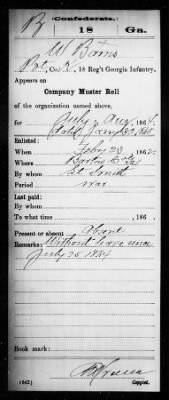 B
Confederate.
18
Ga.
W Barns
Pvt, Co. K, 18 Reg't Georgia Infantry.
Appears on
Company Muster Roll
of the organization named above,
for July & Aug, 1864.
dated Jany 1865.
Enlisted:
When Feby 28, 1862.
Where Bartow Co Ga
By whom Lt Smith
Period war
Last paid:
By whom
To what time , 186 .
Present or absent Absent
Remarks: Without leave since
July 25 1864
Book mark:
(642)
Copyist.